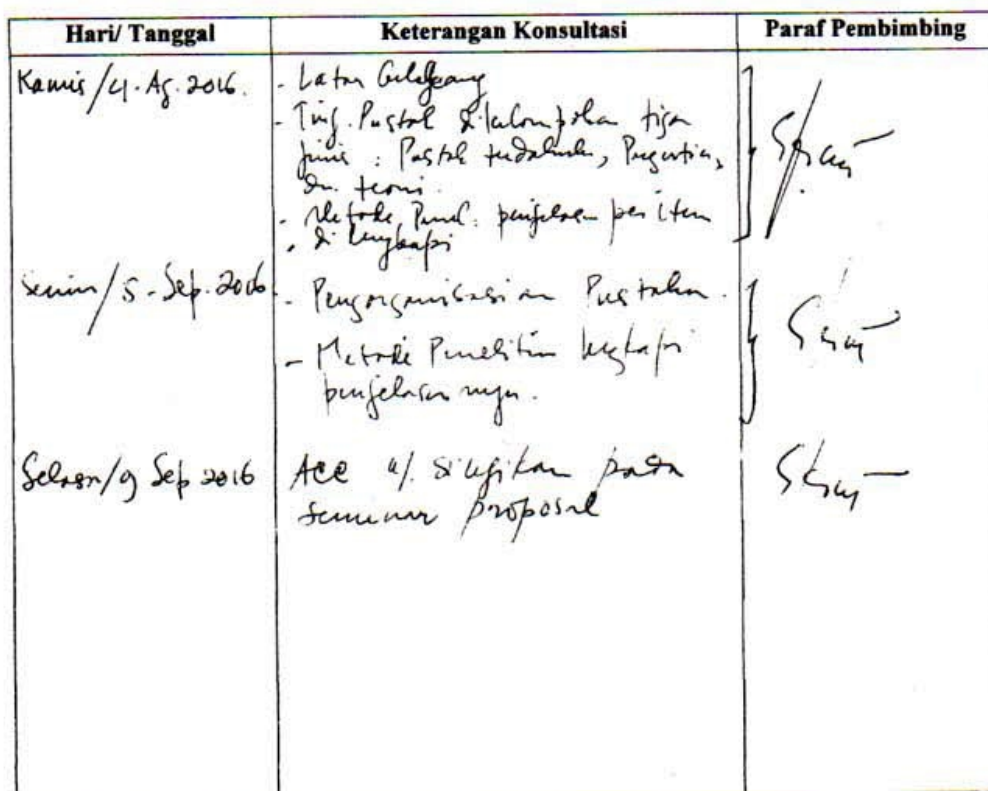 Hari/ Tanggal
Keterangan Konsultasi
Paraf Pembimbing
Kamis/4. Ag. 2016.
- Latar Belakang
- Tinj. Pustak dikelompokan tiga
jenis : Pustak terdahulu, Pengertian,
dn. teori.
- Metode Penel. penjelasan per item
dilengkapi
Senin/5. Sep. 2016
- Pengorganisasian Pustaka.
- Metode Penelitian lengkapi
penjelasannya.
Selasa/9 Sep 2016
Acc u/. diujikan pada
seminar proposal